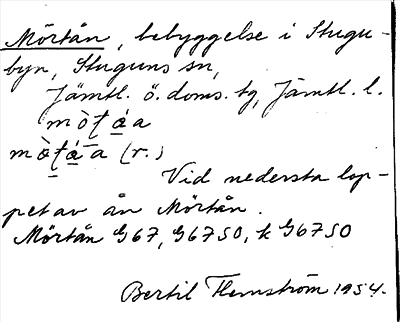 Mörtån, bebyggelse i Stugu-
byn, Stuguns sn,
Jämtl. ö. doms. tg, Jämtl. l.
mò̀ʈ á̱ a
mò̱ʈá̱ a (r.)
Vid nedersta lop-
pet av ån Mörtån.
Mörtån G67, G6750, k G6750
Bertil Flemström 1954.